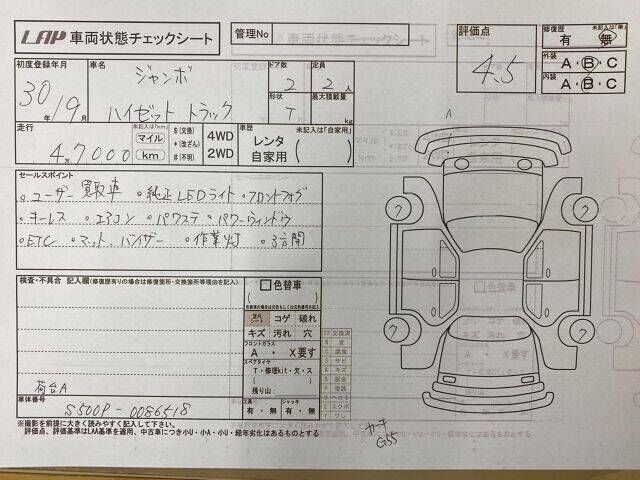 LAP 車両状態チェックシート
管理No
評価点
4.5
修復歴
未記入は「無」
有 無
外装
A・B・C
内装
A・B・C
初度登録年月
30年 9月
車名
ジャンボ
ハイゼット トラック
ドア数
2
定員
2人
形状
T
最大積載量
kg
走行
未記入は「km」
マイル
km
4万7,000
$(交換)
*(改ざん)
#(不明)
4WD
2WD
車歴
未記入は「自家用」
レンタ
自家用
( )
セールスポイント
。ユーザー買取車 。純正LEDライト 。フロントフォグ
。キーレス 。エアコン 。パワステ 。パワーウィンドウ
。ETC 。マット、バイザー 。作業灯 。3方開
検査・不具合 記入欄(修復歴有りの場合は修復箇所・交換箇所等理由を記入)
荷台A
□色替車
( )
室内
シート
コゲ 破れ
キズ 汚れ 穴
フロントガラス
A ・ X要す
スペアタイヤ
T・修理kit・欠・ス
( )
残り山
工具
有・無
ジャッキ
有・無
XX 交換済
A キズ
P 塗装
U ヘコミ
E エクボ
Y ワレ
A
車体番号
S500P-0086518
※撮影を前提に大きく読みやすく記入して下さい。
評価点、評価基準はLAA基準を適用、中古車につき小U・小A・小U・経年劣化はあるものとする
カーキ
G55